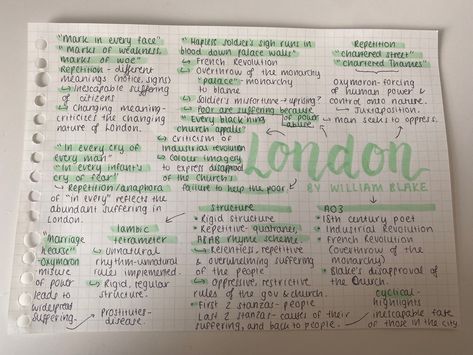 "Mark in every face"
"Marks of weakness,
marks of woe"
Repetition - different
meanings (notice, signs)
↳ Inescapable suffering
of citizens
↳ Changing meaning-
criticises the changing
nature of London.
"In every cry of
every man"
"In every infant's
cry of fear"
↳ Repetition/anaphora
of "in every" reflects the
abundant suffering in
London.
"Marriage
hearse"
oxymoron
misuse
of power
leads to
widespread
suffering.
Prostitutes-
disease.
Iambic
tetrameter
↳ Unnatural
rhythm-unnatural
rules implemented.
↳ Rigid, regular
structure.
"Hapless soldier's sigh runs in
blood down palace walls"
↳ French Revolution
↳ Overthrow of the monarchy
"palace" - monarchy
to blame
↳ Soldier's misfortune → uprising?
↳ Poor are suffering because
of power
abuse.
"Every black'ning
church appalls"
↳ Criticism of
Industrial revolution
↳ Colour imagery
to express disapproval
of the Church's
failure to help the poor
Repetition
"chartered street"
"chartered Thames"
Oxymoron-forcing
of human power &
control onto nature.
↳ Juxtaposition.
- man seeks to oppress.
London
BY WILLIAM BLAKE
Structure
• Rigid structure
• Repetitive-quatrains,
ABAB rhyme scheme.
↳ Relentless, repetitive
& overwhelming suffering
of the people
↳ Oppressive, restrictive
rules of the gov & church.
• First 2 stanzas- people
Last 2 stanzas- causes of their
suffering, and back to people.
AO3
• 18th century poet
• Industrial Revolution
• French Revolution
(Overthrow of the
monarchy)
• Blake's disapproval of
the Church.
cyclical-
highlights
inescapable fate
of those in the city